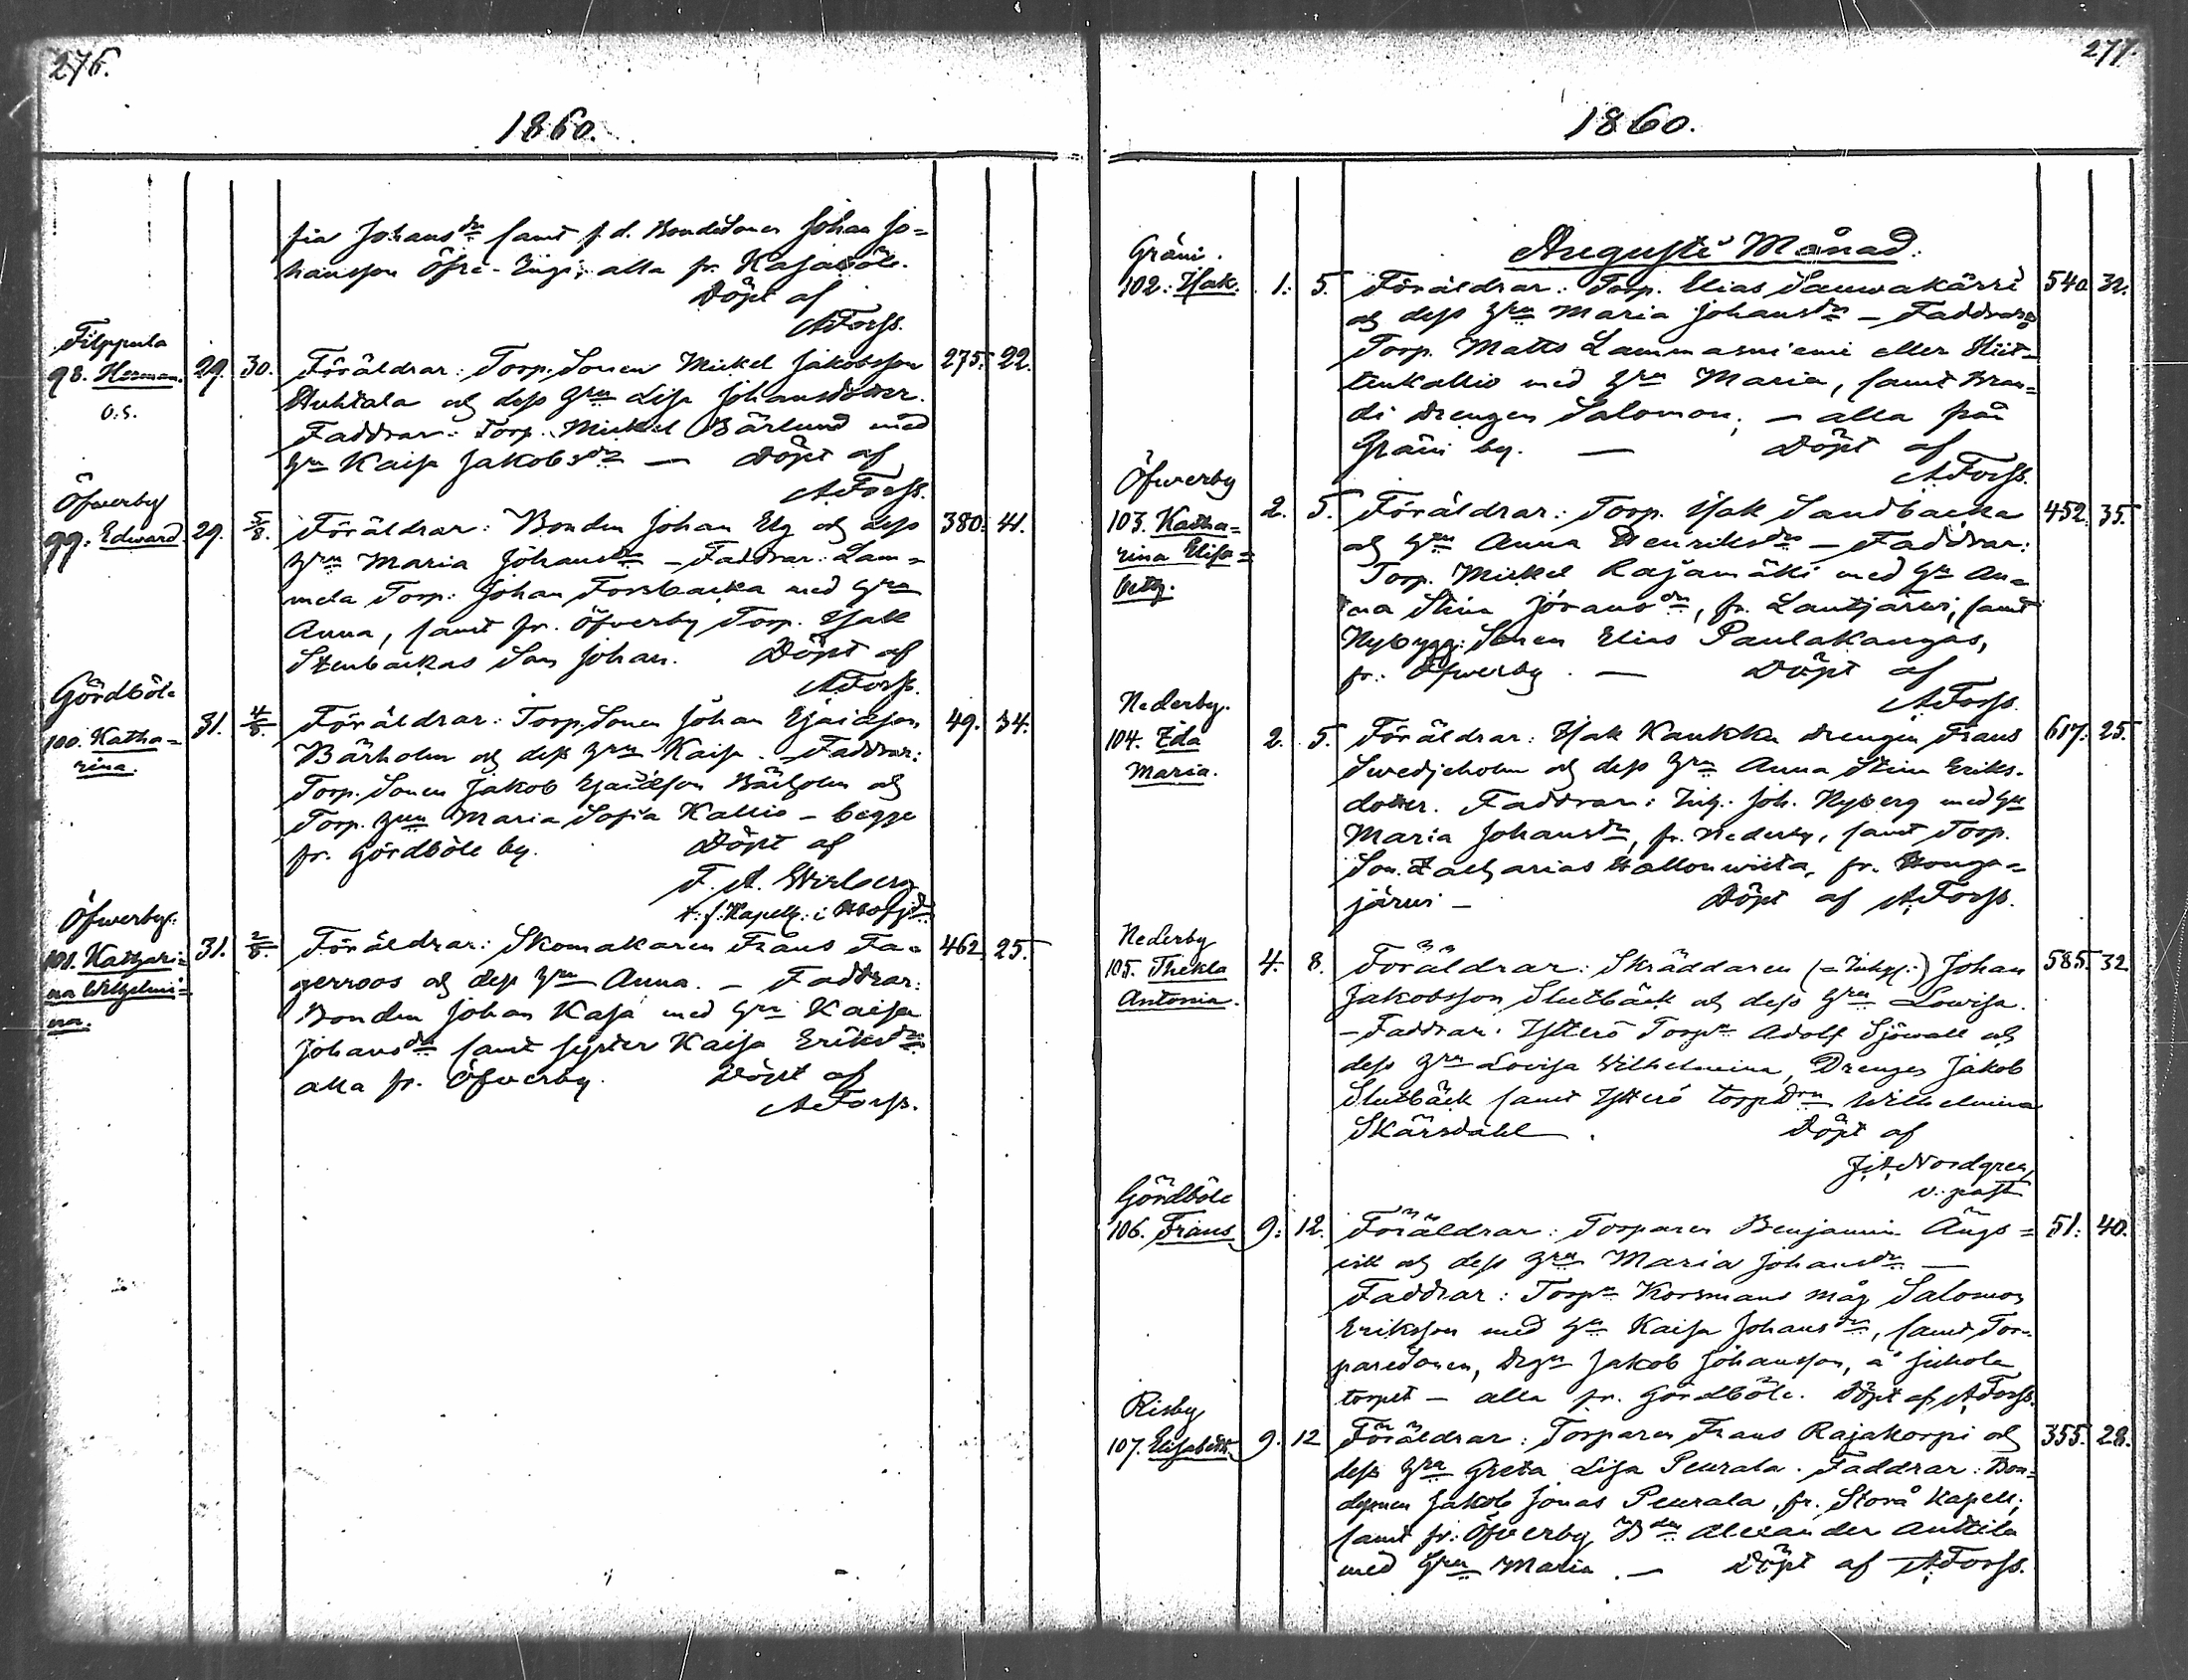 276.
1860.
fia Johansdr samt f.d. Bondesonen Johan Jo=
hansson Öfre-Äijö, alla fr. Kasaböle.
Döpt af
AForss.
Filppula
98. Herman. 29. 30. Föräldrar: Torp. Sonen Mickel Jakobsson 275. 22.
o.s.
Huhtala och dess Hru Lisa Johansdotter.
Faddrar: Torp. Mickel Bärlund med
Hru Kaisa Jakobsdr — Döpt af
AForss.
Öfverby
99. Edward 29. 5/8. Föräldrar: Bonden Johan Elg och dess 380. 41.
Hru Maria Johansdr – Faddrar: Lam=
mela Torp: Johan Forsbacka med Hru
Anna, samt fr. Öfverby Torp. Isak
Stenbackas Son Johan. Döpt af
AForss.
Gördböle
100. Katha= 31. 4/8. Föräldrar: Torp. Sonen Johan Esaiasson 49. 34.
rina.
Bärholm och dess Hru Kaisa. – Faddrar:
Torp. Sonen Jakob Esaiasson Bärholm och
Torp. Hru Maria Sofia Kallio – begge
fr. Gördböle by. Döpt af
F. A.
t. f. Kapell: i
Öfverby.
101. Kathari= 31. 2/8. Föräldrar: Skomakaren Frans Fa= 462 25.
na Wilhelmi=
na.
gerroos och dess Hru Anna. – Faddrar:
Bonden Johan Kasa med Hru Kaisa
Johansdr samt syster Kaisa Eriksdr
alla fr. Öfverby. Döpt af
AForss.
277.
1860.
Augusti Månad.
Gräni.
102. Isak. 1. 5. Föräldrar: Torp. Elias Sauwakärri 540 32.
och dess Hru Maria Johansdr – Faddrar:
Torp. Matts Lammasniemi eller Hiit=
tenkallio med Hru Maria, samt Bran=
di drengen Salomon, – alla från
Gräni by. — Döpt af
AForss.
Öfverby
103. Katha= 2. 5. Föräldrar: Torp. Isak Sandbacka 452. 35.
rina Elisa=
beth.
och Hru Anna Henriksdr – Faddrar:
Torp. Mickel Rajamäki med Hru An=
na Stina Jöransdr, fr. Lautjärwi, samt
Nybygg: Sonen Elias Paulakangas,
fr. Öfwerby. — Döpt af
AForss.
Nederby.
104. Ida 2. 5. Föräldrar: Isak Kaukka drengen Frans 617. 25.
Maria.
Swedjeholm och dess Hru Anna Stina Eriks-
dotter. Faddrar: Inh. Joh. Nyberg med Hru
Maria Johansdr, fr. Nederby, samt Torp.
Son. Zacharias Hallonwieta, fr. Honga=
järwi – Döpt af AForss.
Nederby
105. Thekla 4. 8. Föräldrar: Skräddaren (= Inhys:) Johan 585. 32
Antonia.
Jakobsson Slutbäck och dess Hru Lowisa.
– Faddrar: Ytterö Torpn Adolf Sjöwall och
dess Hru Lovisa Wilhelmina, Drengen Jakob
Slutbäck samt Ytterö torpdrn Wilhelmina
Skärsdahl. Döpt af
J.A. Nordgren,
v. past
Gördböle
106. Frans 9. 12. Föräldrar: Torparen Benjamin Ängs= 51. 40.
och dess Hru Maria Johansdr —
Faddrar: Torpn Korsmans måg Salomon
Eriksson med Hru Kaisa Johansdr, samt Tor-
paresonen, drgn Jakob Johansson, å
torpet – alla fr. Gördböle. Döpt af AForss.
Risby
107. Elisabeth 9. 12 Föräldrar: Torparen Frans Rajakorpi och 355. 28.
dess Hru Greta Lisa Peurala. Faddrar: Bon=
desonen Jakob Jonas Peurala, fr. Storå Kapell,
samt fr: Öfverby Bden Alexander Anttila
med Hru Maria. — Döpt af AForss.